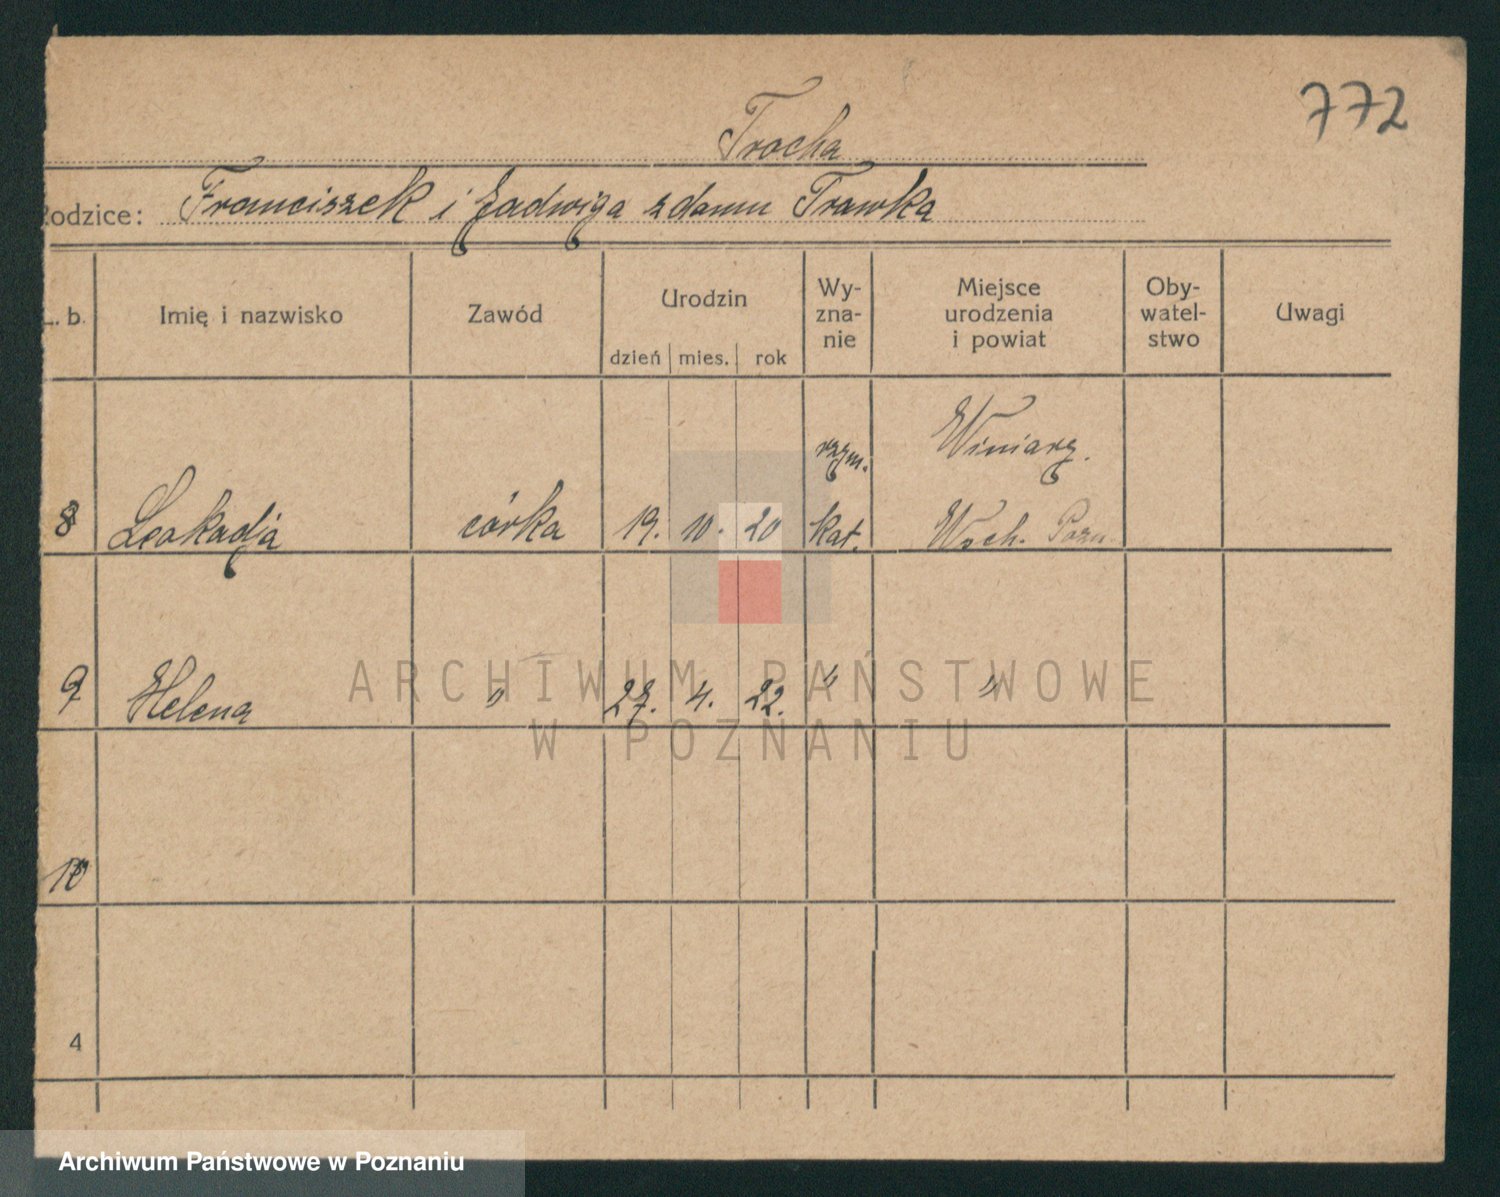 772
Trocha
Rodzice: Franciszek i Jadwiga z domu Trawka
L. b. Imię i nazwisko Zawód Urodzin Wy-zna-nie Miejsce urodzenia i powiat Oby-watel-stwo Uwagi
dzień mies. rok
8 Leokadja córka 19. 10. 20 rzym. kat. Winiary. Wsch. Pozn.
9 Helena " 27. 4. 22. " "
10
4
ARCHIWUM PAŃSTWOWE
W POZNANIU
Archiwum Państwowe w Poznaniu